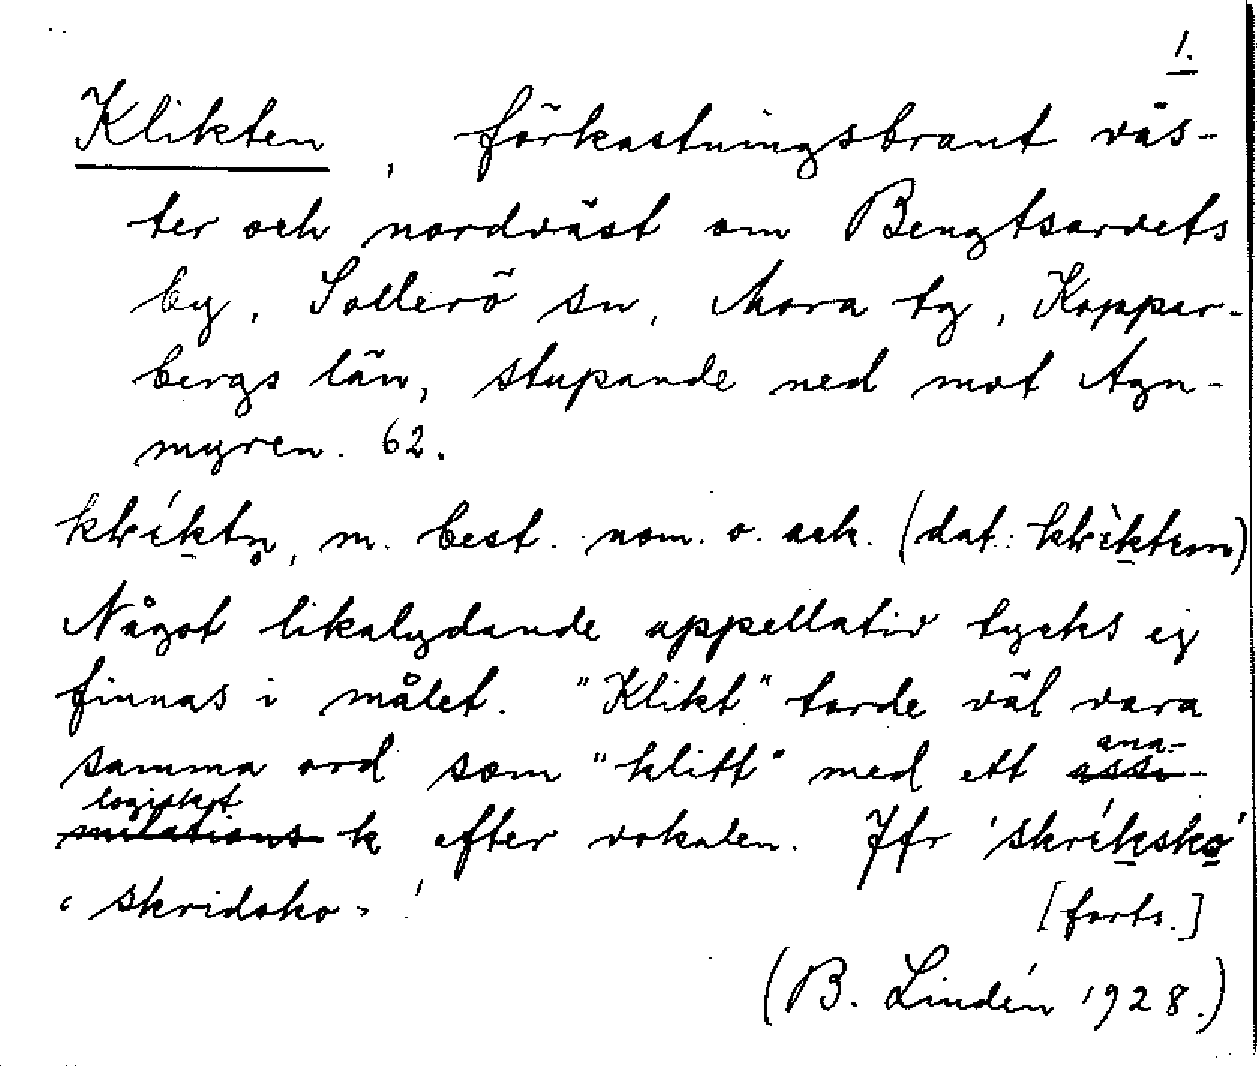 1.
Klikten, förkastningsbrant väs-
ter och nordväst om Bengtsarvets
by, Sollerö sn, Mora tg, Koppar-
bergs län, stupande ned mot Agn-
myren. 62.
klríktn̥, m. best. nom. o. ack. (dat: klrìktem)
Något likalydande appellativ tycks ej
finnas i målet. "Klikt" torde väl vara
samma ord som "klitt" med ett assi- ana-
milations logiskt k efter vokalen. Jfr 'skríksko'
'skridsko-'
[forts.]
(B. Lindén 1928.)